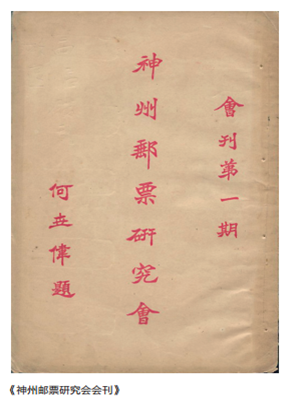 會刊第一期
神州郵票研究會
何世偉題
《神州邮票研究会会刊》